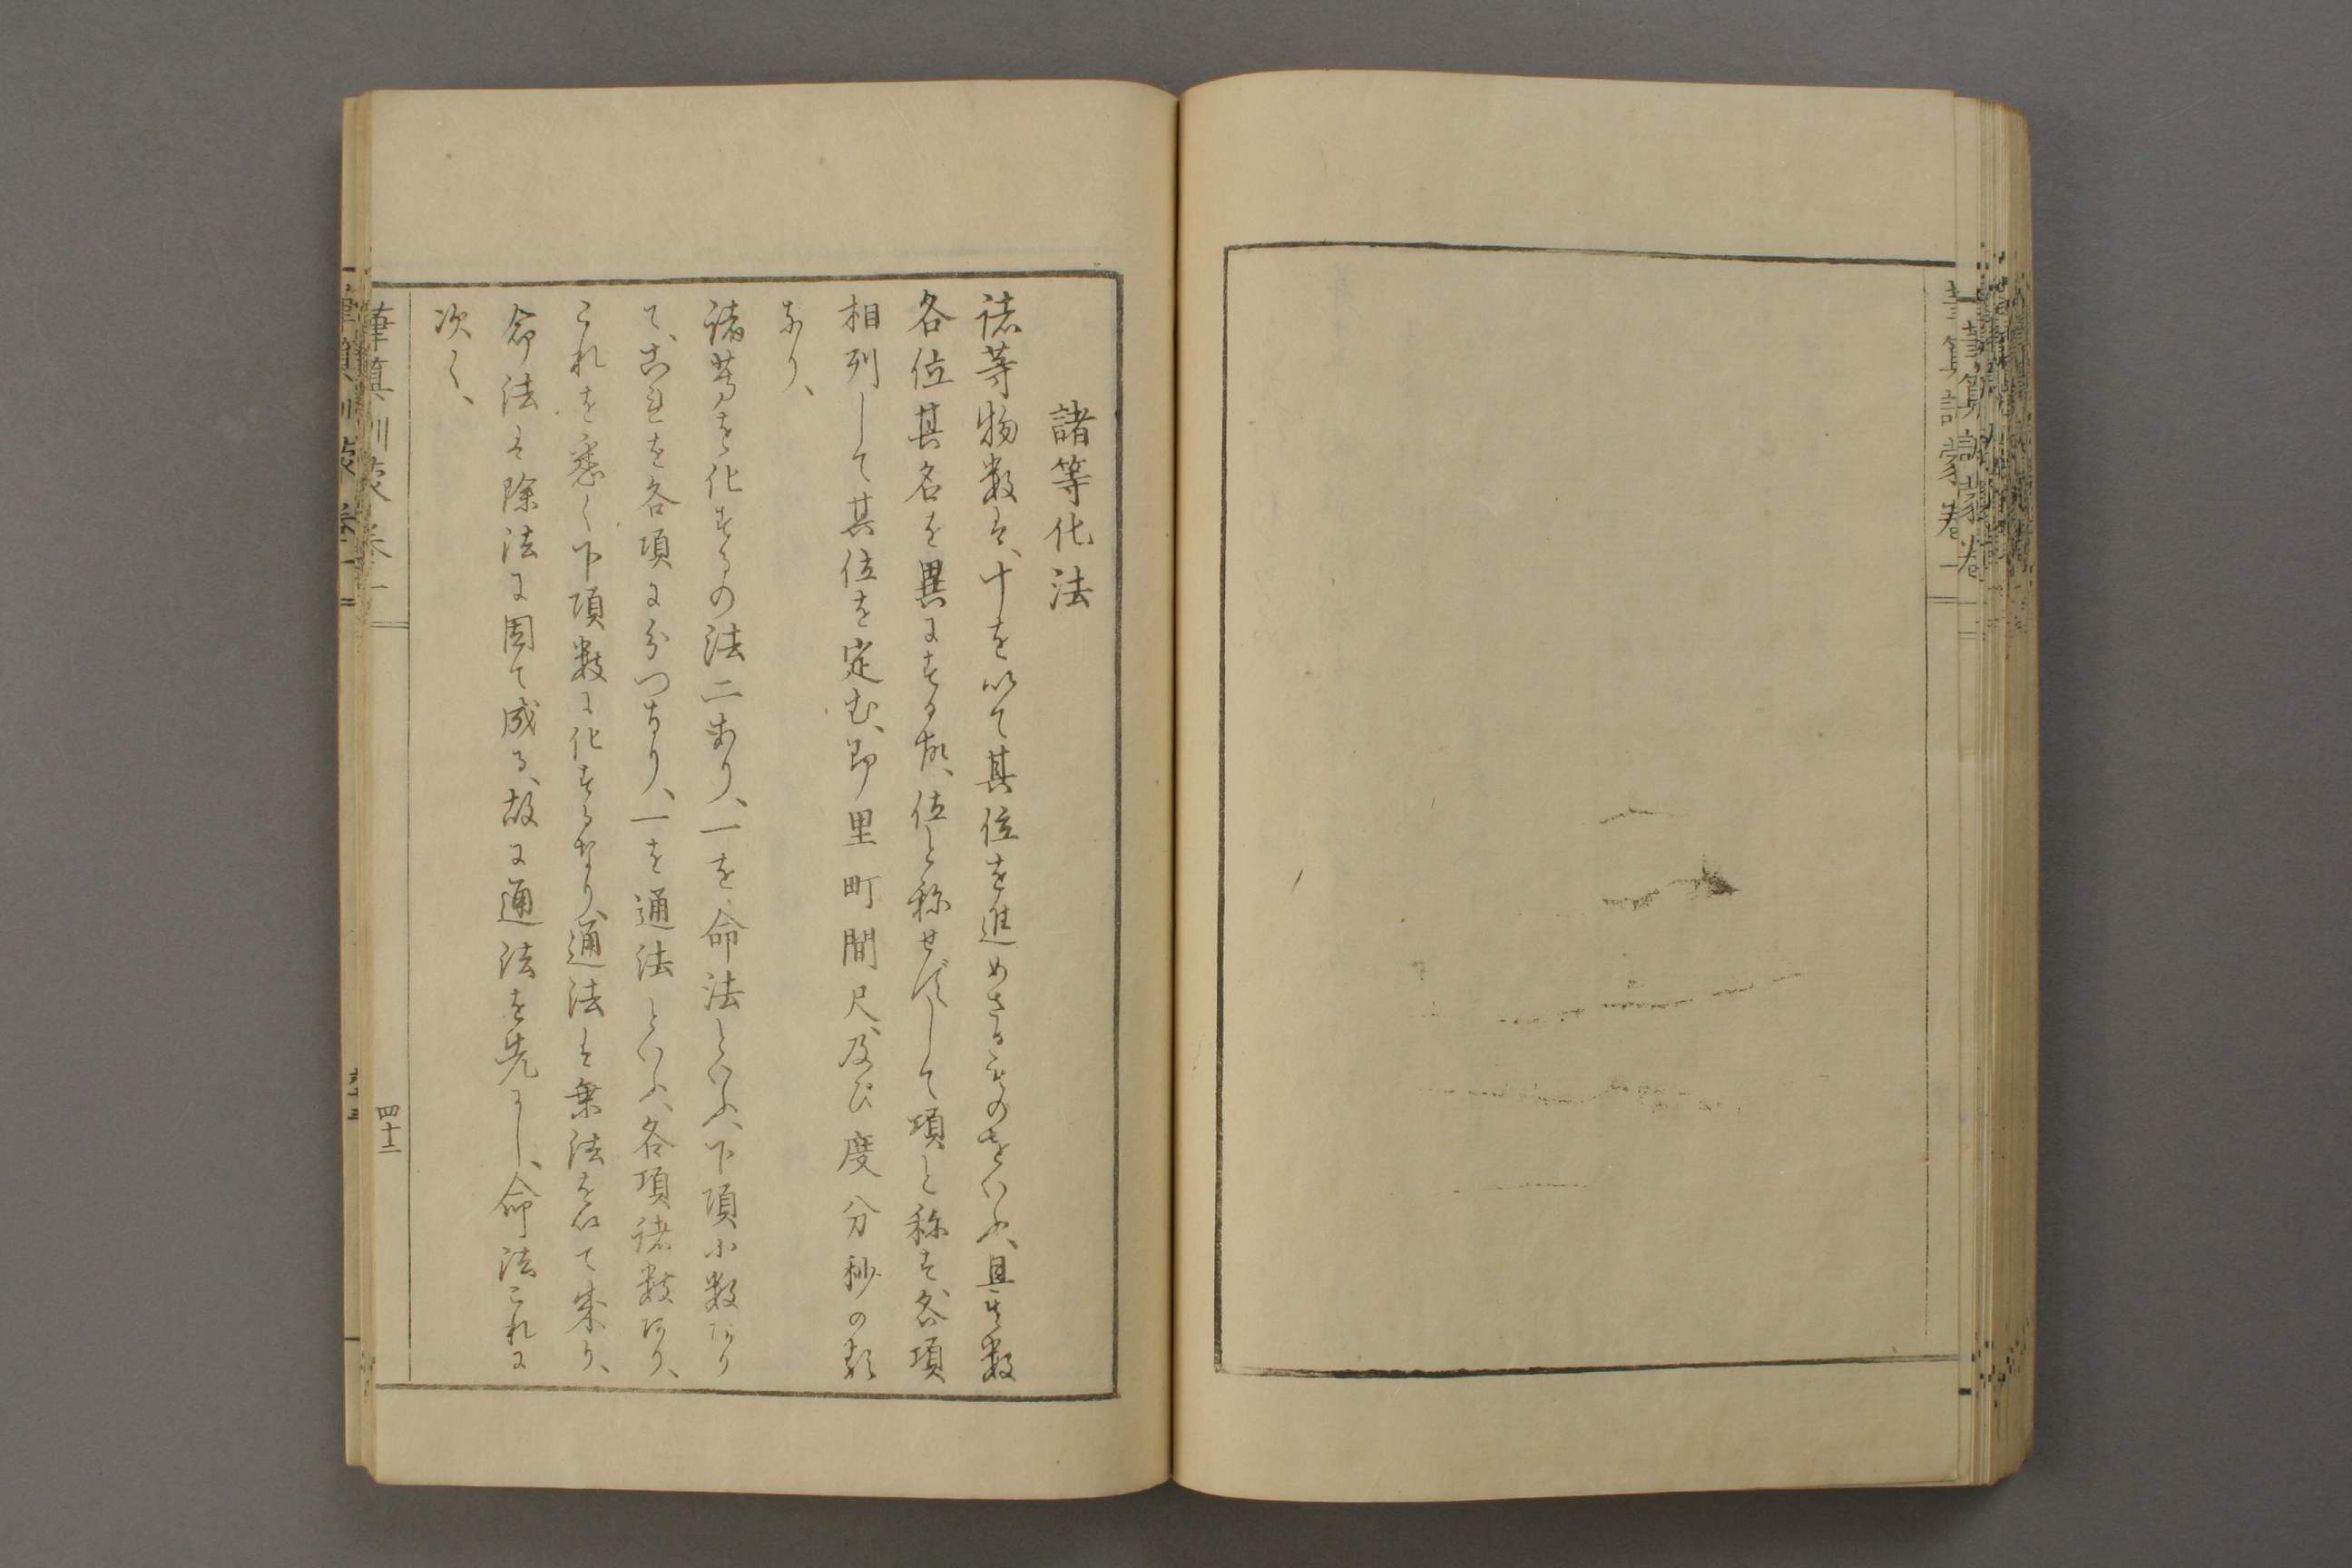 筆算訓蒙卷一
諸等化法
諸等物数は、十を以て其位を進めさるものをいふ、且其数
各位其名を異にする故、位と称せずして項と称す、各項
相列して其位を定む、即里町間尺、及び度分秒の類
なり、
諸等を化するの法二あり、一を命法といふ、下項小数あり
て、これを各項に分つなり、一を通法といふ、各項諸数あり、
これを悉く下項数に化するなり、通法は乗法を以て来り、
命法は除法に因て成る、故に通法を先にし、命法これに
次く、
筆算訓蒙 卷一
四十二